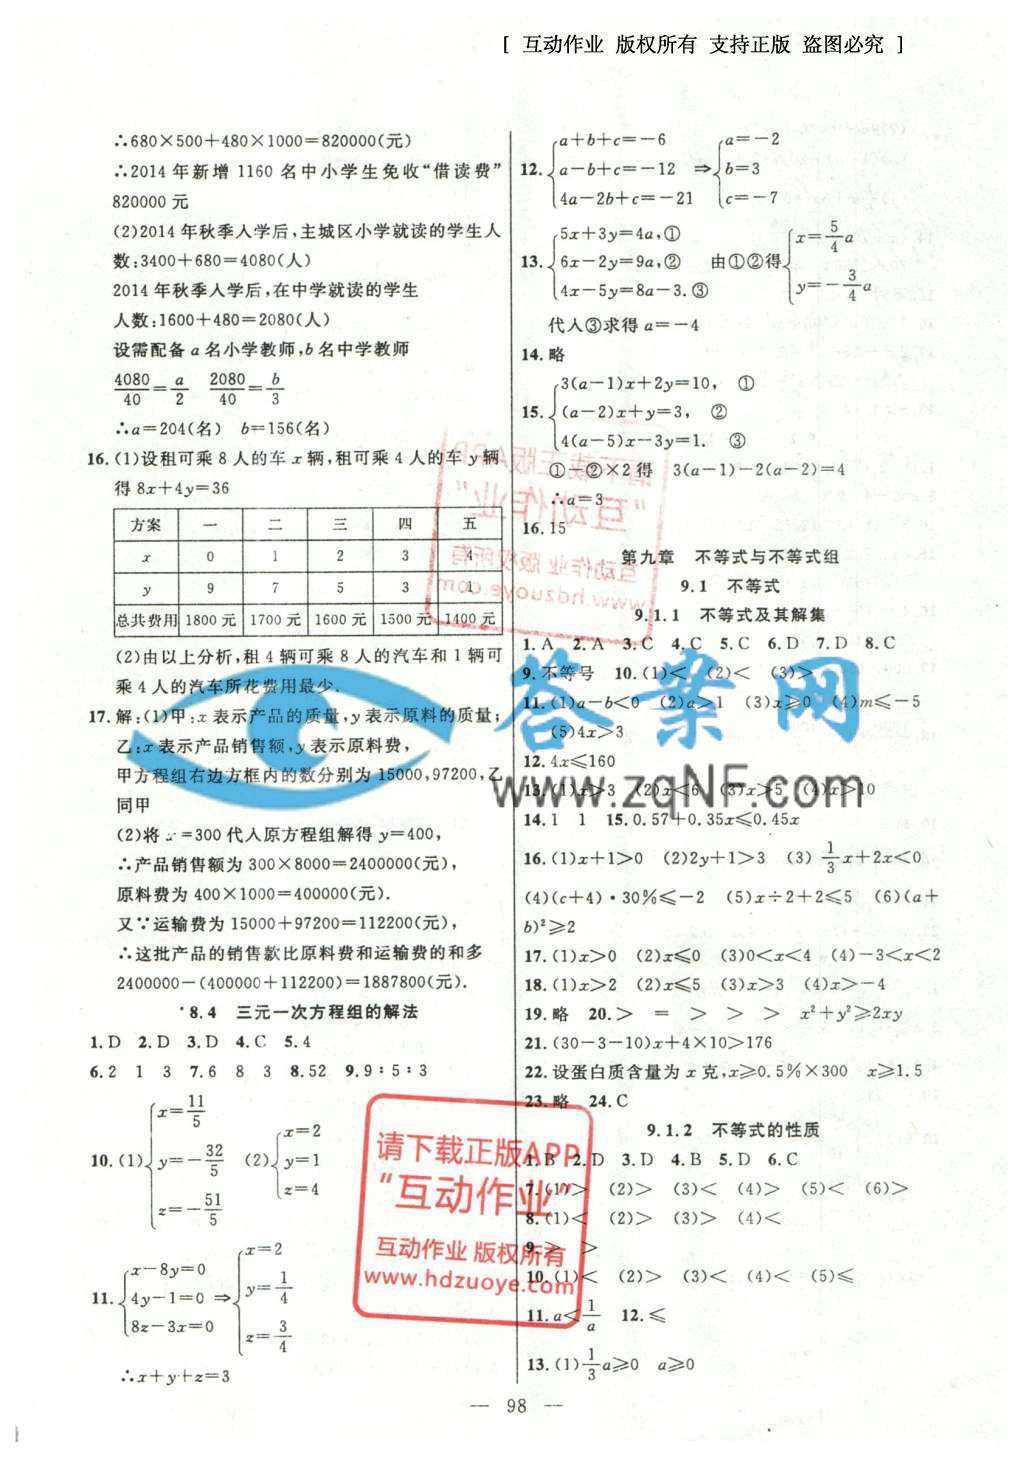 [ 互动作业 版权所有 支持正版 盗图必究 ]
∴680×500+480×1000=820000(元)
∴2014年新增1160名中小学生免收“借读费”
820000元
(2)2014年秋季入学后,主城区小学就读的学生人
数:3400+680=4080(人)
2014年秋季入学后,在中学就读的学生
人数:1600+480=2080(人)
设需配备a名小学教师,b名中学教师
4080/40=a/2 2080/40=b/3
∴a=204(名) b=156(名)
16.(1)设租可乘8人的车x辆,租可乘4人的车y辆
得8x+4y=36
方案 一 二 三 四 五
x 0 1 2 3 4
y 9 7 5 3 1
总共费用 1800元 1700元 1600元 1500元 1400元
(2)由以上分析,租4辆可乘8人的汽车和1辆可
乘4人的汽车所花费用最少.
17.解:(1)甲:x表示产品的质量,y表示原料的质量;
乙:x表示产品销售额,y表示原料费,
甲方程组右边方框内的数分别为15000,97200,乙
同甲
(2)将x=300代人原方程组解得y=400,
∴产品销售额为300×8000=2400000(元),
原料费为400×1000=400000(元).
又∵运输费为15000+97200=112200(元),
∴这批产品的销售款比原料费和运输费的和多
2400000-(400000+112200)=1887800(元).
8.4 三元一次方程组的解法
1.D 2.D 3.D 4.C 5.4
6.2 1 3 7.6 8 3 8.52 9.9:5:3
10.(1){x=11/5 y=-32/5 z=-51/5 (2){x=2 y=1 z=4
11.{x-8y=0 4y-1=0 8z-3x=0 ⇒{x=2 y=1/4 z=3/4
∴x+y+z=3
12.{a+b+c=-6 a-b+c=-12 4a-2b+c=-21 ⇒{a=-2 b=3 c=-7
13.{5x+3y=4a,① 6x-2y=9a,② 4x-5y=8a-3.③ 由①②得{x=5/4a y=-3/4a
代人③求得a=-4
14.略
15.{3(a-1)x+2y=10, ① (a-2)x+y=3, ② 4(a-5)x-3y=1. ③
①-②×2得 3(a-1)-2(a-2)=4
∴a=3
16.15
第九章 不等式与不等式组
9.1 不等式
9.1.1 不等式及其解集
1.A 2.A 3.C 4.C 5.C 6.D 7.D 8.C
9.不等号 10.(1)< (2)< (3)>
11.(1)a-b<0 (2)a>1 (3)x≥0 (4)m≤-5
(5)4x>3
12.4x≤160
13.(1)x>3 (2)x<6 (3)x>5 (4)x>10
14.1 1 15.0.57+0.35x≤0.45x
16.(1)x+1>0 (2)2y+1>3 (3)1/3x+2x<0
(4)(c+4)·30%≤-2 (5)x÷2+2≤5 (6)(a+
b)²≥2
17.(1)x>0 (2)x≤0 (3)0<x<4 (4)-3<x<2
18.(1)x>2 (2)x≤5 (3)x>3 (4)x>-4
19.略 20.> = > > > x²+y²≥2xy
21.(30-3-10)x+4×10>176
22.设蛋白质含量为x克,x≥0.5%×300 x≥1.5
23.略 24.C
9.1.2 不等式的性质
1.B 2.D 3.D 4.B 5.D 6.C
7.(1)> (2)> (3)< (4)> (5)< (6)>
8.(1)< (2)> (3)> (4)<
9.> >
10.(1)< (2)> (3)< (4)< (5)≤
11.a<1/a 12.≤
13.(1)1/3a≥0 a≥0
— 98 —
请下载正版APP
“互动作业”
互动作业 版权所有
www.hdzuoye.com
请下载正版APP
“互动作业”
互动作业 版权所有
www.hdzuoye.com
答案网
www.zqNF.com